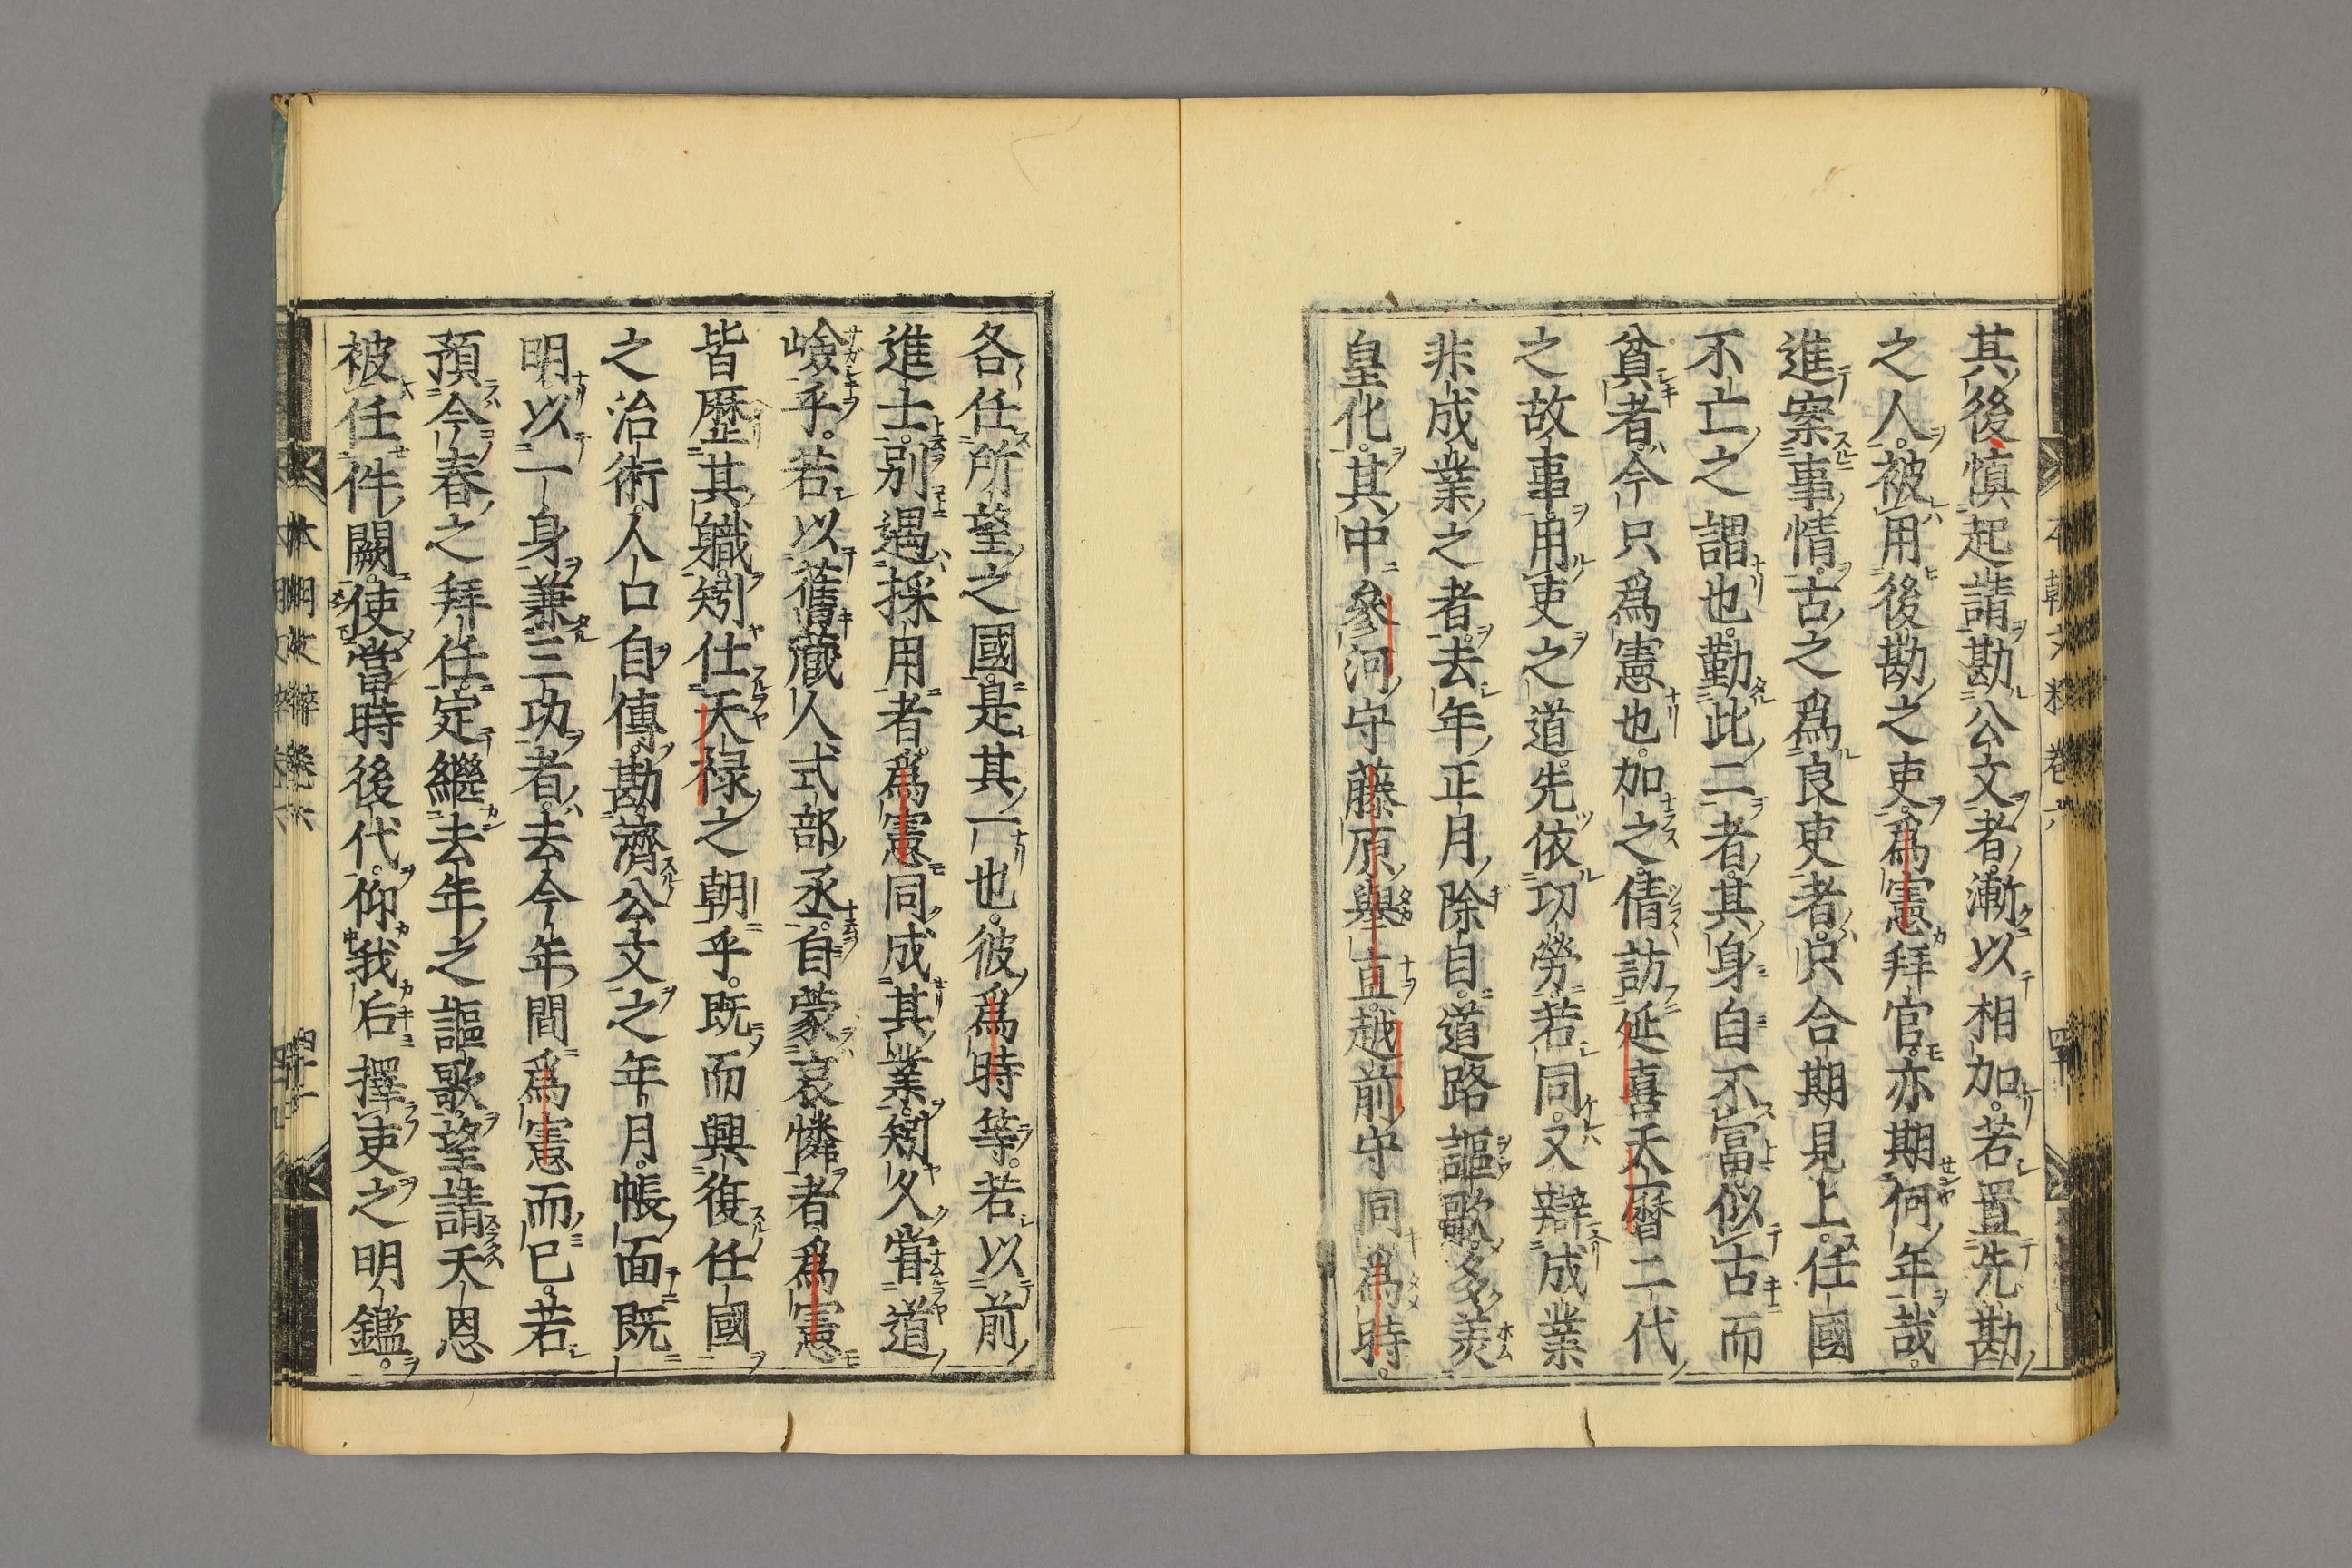 其後慎起請勘公文者漸以相加。若置先勘
之人。被用後勘之吏。爲憲拜官。亦期何年哉。
進案事情。古之爲良吏者。只合期見上。任國
不亡之謂也。勤此二者。其身自不富。似古而
貧者。今只爲憲也。加之倩訪延喜天曆二代
之故事。用吏之道。先依功勞。若同。又辯成業
非成業之者。去年正月除自。道路謳歌。多羨
皇化。其中參河守藤原擧直。越前守同爲時。
各任所望之國。是其一也。彼爲時等。若以前
進士。別遇採用者。爲憲同成其業。矧久嘗道
嶮乎。若以舊藏人式部丞。自蒙哀憐者。爲憲
皆歷其職。矧仕天禄之朝乎。既而興復任國
之治術。人口自傳。勘濟公文之年月。帳面既
明。以一身兼三功者。去今年間。爲憲而已。若
預今春之拜任。定繼去年之謳歌。望請天恩
被任件闕。使當時後代。仰我后擇吏之明鑑。
本朝文粹卷六